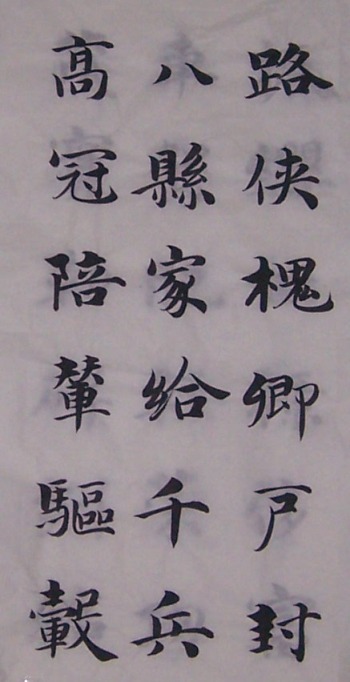 路侠槐卿戸封
八縣家給千兵
高冠陪輦驅轂